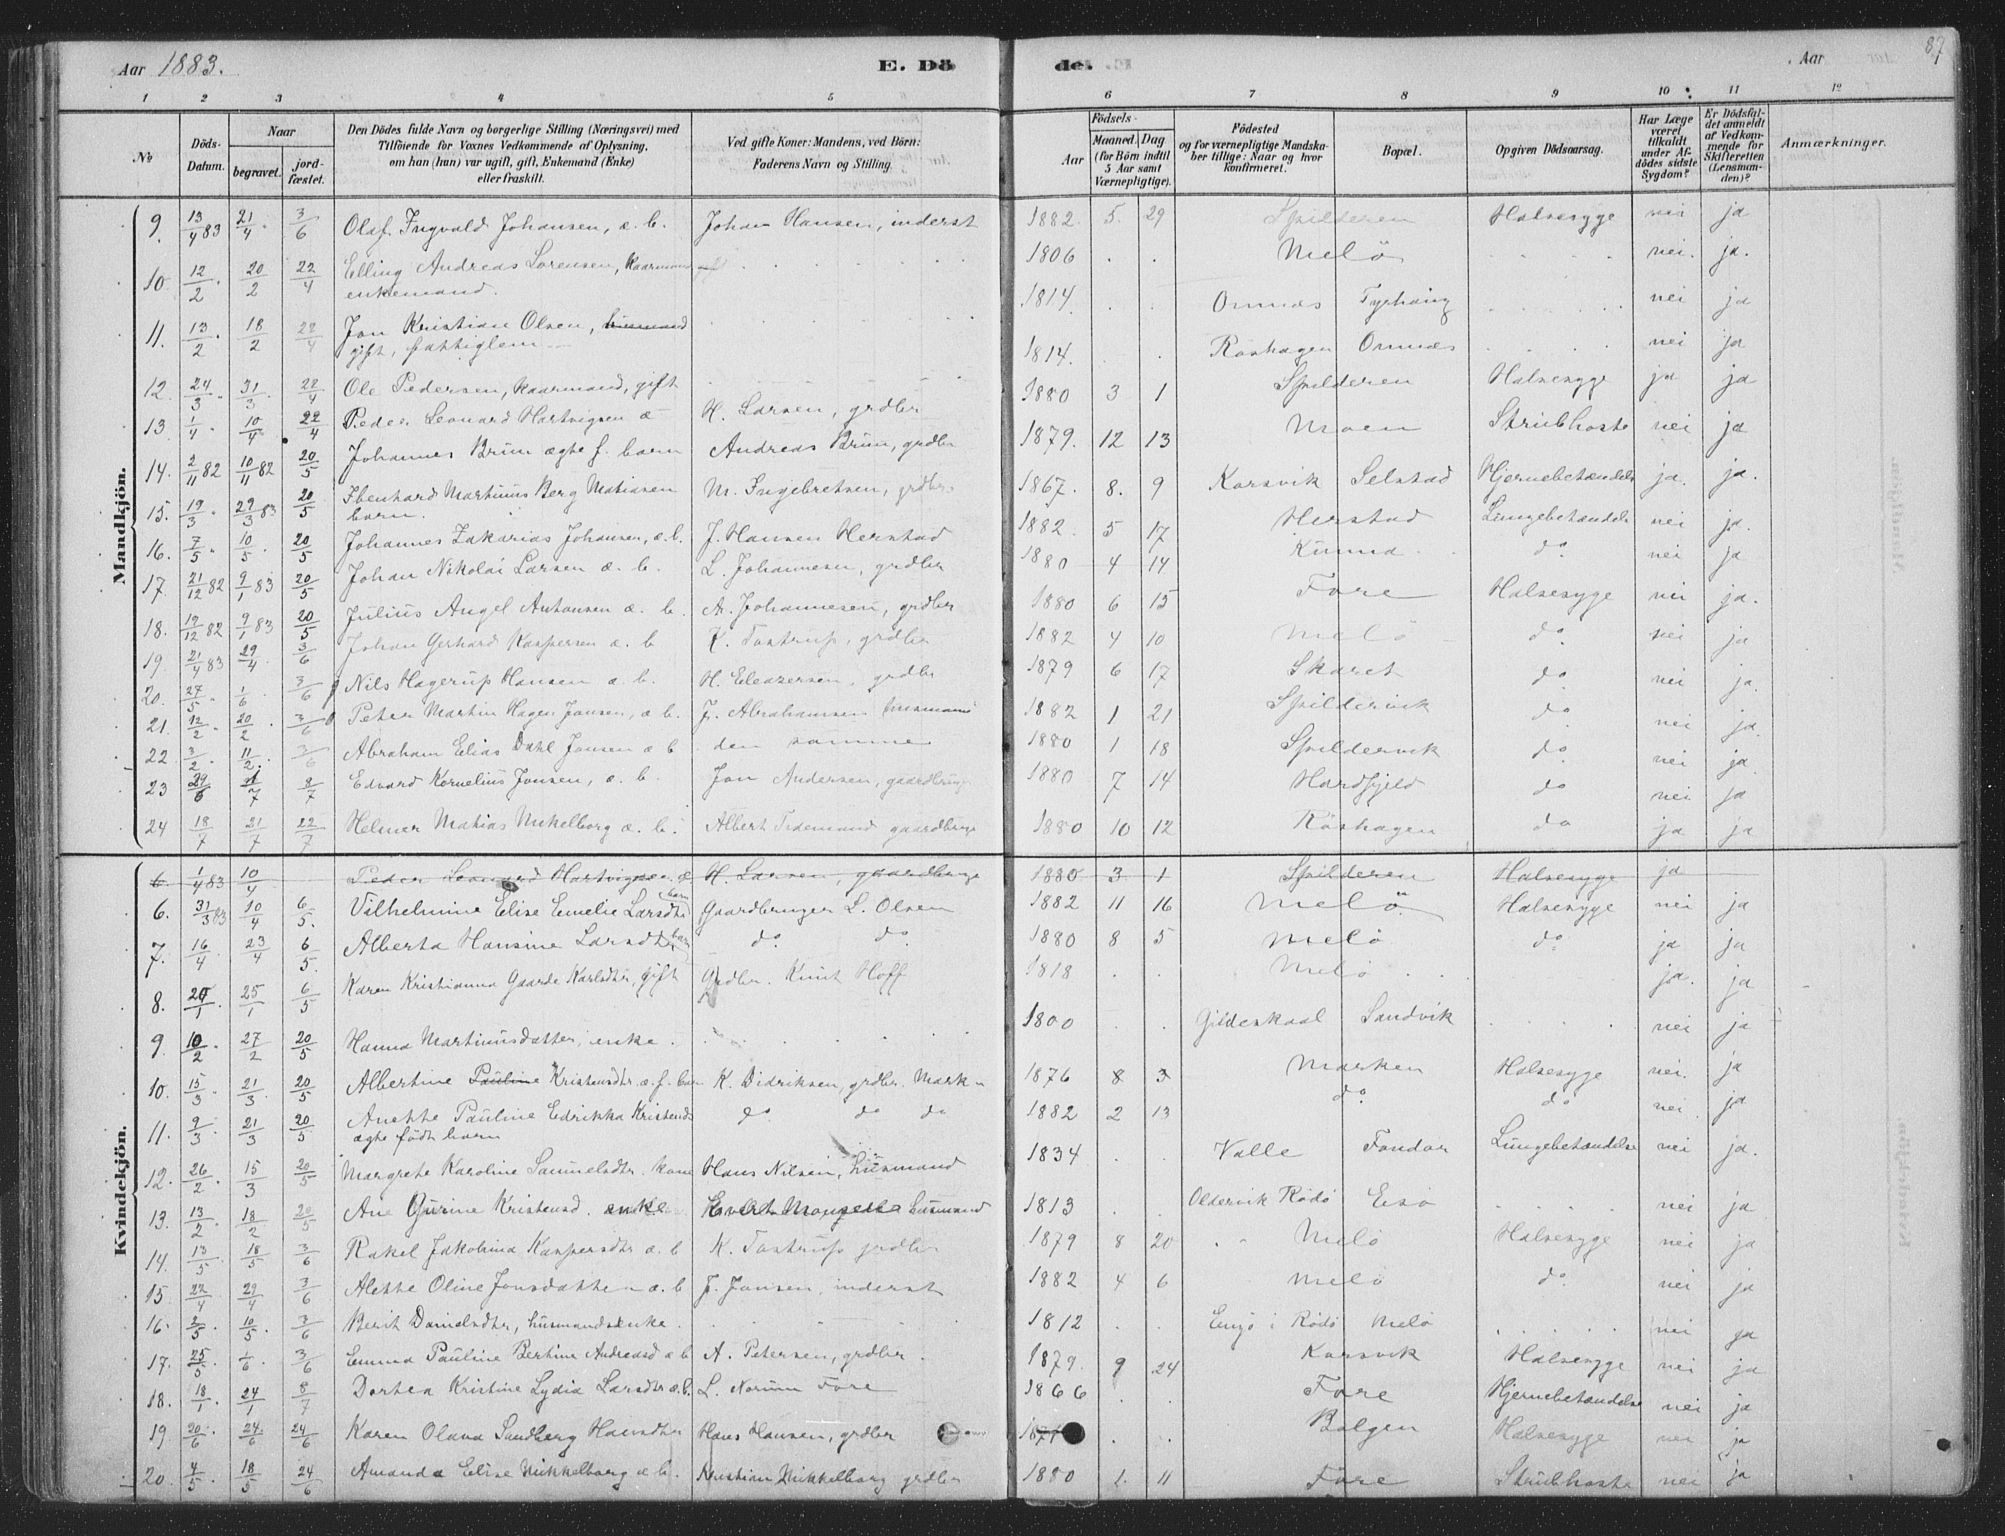 Aar 1883. E. Dö de. Aar 87
1 2 3 4 5 6 7 8 9 10 11 12
№ Döds-Datum. Naar begravet. jord-fæstet. Den Dödes fulde Navn og borgerlige Stilling (Næringsvei) med Tilföiende for Voxnes Vedkommende af Oplysning, om han (hun) var ugift, gift, Enkemand (Enke) eller fraskilt. Ved gifte Koner: Mandens, ved Börn: Faderens Navn og Stilling. Födsels- Aar Maaned. Dag (for Börn indtil 5 Aar samt Værnepligtige). Födested og for værnepligtige Mandskaber tillige: Naar og hvor konfirmeret. Bopæl. Opgiven Dödsaarsag. Har Læge været tilkaldt under Afdödes sidste Sygdom? Er Dödsfaldet anmeldt af Vedkommende for Skifteretten (Lensmanden)? Anmærkninger.
Mandkjön.
9. 13/4 83 21/4 3/6 Olaf Ingvald Johansen, æ. b. Johan Hansen, inderst 1882 5 29 Spilderen Halsesyge nei ja
10. 12/2 20/2 22/4 Elling Andreas Sørensen, Kaarmand enkemand. 1806 Melö nei. ja.
11. 13/2 18/2 22/4 Jon Kristian Olsen, husmand gift, fattiglem 1814. Ornnes nei ja
12. 24/3 31/3 22/4 Ole Pedersen, kaarmand, gift 1814. Röshagen Ornnes nei ja
13. 1/4 10/4 22/4 Peder Leonard Hartvigsen æ H. Larsen, grdbr 1880 3 1 Spilderen Halsesyge ja ja
14. 2/11 82 10/11 82 20/5 Johannes Brun ægte f. barn Andreas Brun, grdbr 1879. 12 13 Moen Strubhoste nei ja
15. 19/3 29/3 83 20/5 Ebenhard Martinus Berg Matiasen barn. M. Ingebretsen, grdbr 1867. 8. 9 Korsvik Selstad Hjernebetændels ja. ja.
16. 7/5 10/5 20/5 Johannes Zakarias Johansen, æ. b. J. Hansen Herstad 1882. 5 17 Herstad Lungebetændels nei ja.
17. 21/12 82 9/1 83 20/5 Johan Nikolai Larsen æ. b. L. Johannesen, grdbr 1880 4 14 Kunna do nei ja
18. 19/12 82 9/1 83 20/5 Julius Angel Antonsen æ. b. A. Johannesen, grdbr 1880 6 15 Fore Halsesyge nei ja.
19. 21/4 83 29/4 3/6 Johan Gerhard Kaspersen æ. b K. Tostrup, grdbr 1882 4 10 Melö do nei ja
20. 27/5 1/6 3/6 Nils Hagerup Hansen æ. b. H. Eleazersen, grdbr 1879 6 17 Skaret do nei ja.
21. 12/2 20/2 3/6 Peter Martin Hagen Jonsen, æ b. J. Abrahamsen husmand 1882 1 21 Spildervik do nei ja.
22 3/2 11/2 3/6 Abraham Elias Dahl Jonsen æ b den samme 1880 1 18 Spildervik do nei ja
23 29/6 1/7 8/7 Edvard Kornelius Jonsen, æ. b. Jon Andersen, gaardbrug 1880 7 14 Hardfjeld do nei ja
24 18/7 21/7 22/7 Helmer Matias Mikelborg æ. b. Albert Tidemand gaardbrug 1880 10 12 Röshagen do ja ja
Kvindekjön.
6 1/4 83 10/4 Peder Leonard Hartvigsen æ H. Larsen, gaardbrug 1880 3 1 Spilderen Halsesyge ja
6. 31/3 83 10/4 6/5. Vilhelmine Elise Emelie Larsdtr barn Gaardbruger L. Olsen 1882 11 16 Melö Halsesyge nei ja
7. 16/4 23/4 6/5. Alberta Hansine Larsdtr barn do do 1880 8 5 Melö do ja ja
8. 20/1 25/1 6/5 Karen Kristianna Gaarde Karlsdtr, gift Grdbr. Knut Hoff 1818 Melö ja. ja
9. 10/2 27/2 20/5 Hanna Martinusdatter, enke. 1800 Gildeskaal Sandvik nei ja
10. 15/3 21/3 20/5 Albertine Pauline Kristensdtr. æ. f. barn K. Didriksen, grdbr. Mark 1876 8 3 Marken Halsesyge nei. ja
11. 9/3 21/3 20/5 Anette Pauline Edrikka Kristensd ægte født barn do do do 1882 2 13 do do nei. ja
12. 26/2 15/3 20/5 Margrete Karoline Samuelsdtr. kone Hans Nilsen, husmand 1834 Valle Fondør Lungebetændelse nei ja.
13. 13/2 18/2 20/5 Ane Gurine Kristensd. enke Evert Mongels husmand 1813 Oldervik Rödö Esö nei ja
14. 13/5 18/5 3/6 Rakel Jakobina Kaspersdtr æ. b K. Tostrup grdbr 1879 8 20 Melö Halsesyge nei ja
15. 22/4 29/4 3/6 Alette Oline Jonsdatter æ. b J. Jonsen, inderst 1882 4 6 Melö do nei ja
16. 2/5 10/5 3/6 Berit Danielsdtr, husmandsenke. 1812 i Rödö Melö nei ja
17. 25/5 1/6 3/6 Emma Pauline Bertine Andreasd æ b A. Petersen, grdbr. 1879. 9 24 Korsvik Halsesyge nei ja
18. 18/1 24/1 8/7 Dortea Kristine Lydia Larsdtr æ. b. L. Norum Fore 1866 Fore Hjernebetændelse nei ja
19. 20/6 24/6 24/6 Karen Olava Sandberg Hansdtr Hans Hansen, grdbr Bolgen Halsesyge nei ja
20. 4/5 18/5 24/6 Amanda Elise Mikkelborg æ b. Kristian Mikkelborg grdbr 1880 1. 11 Fore Strubhoste nei ja